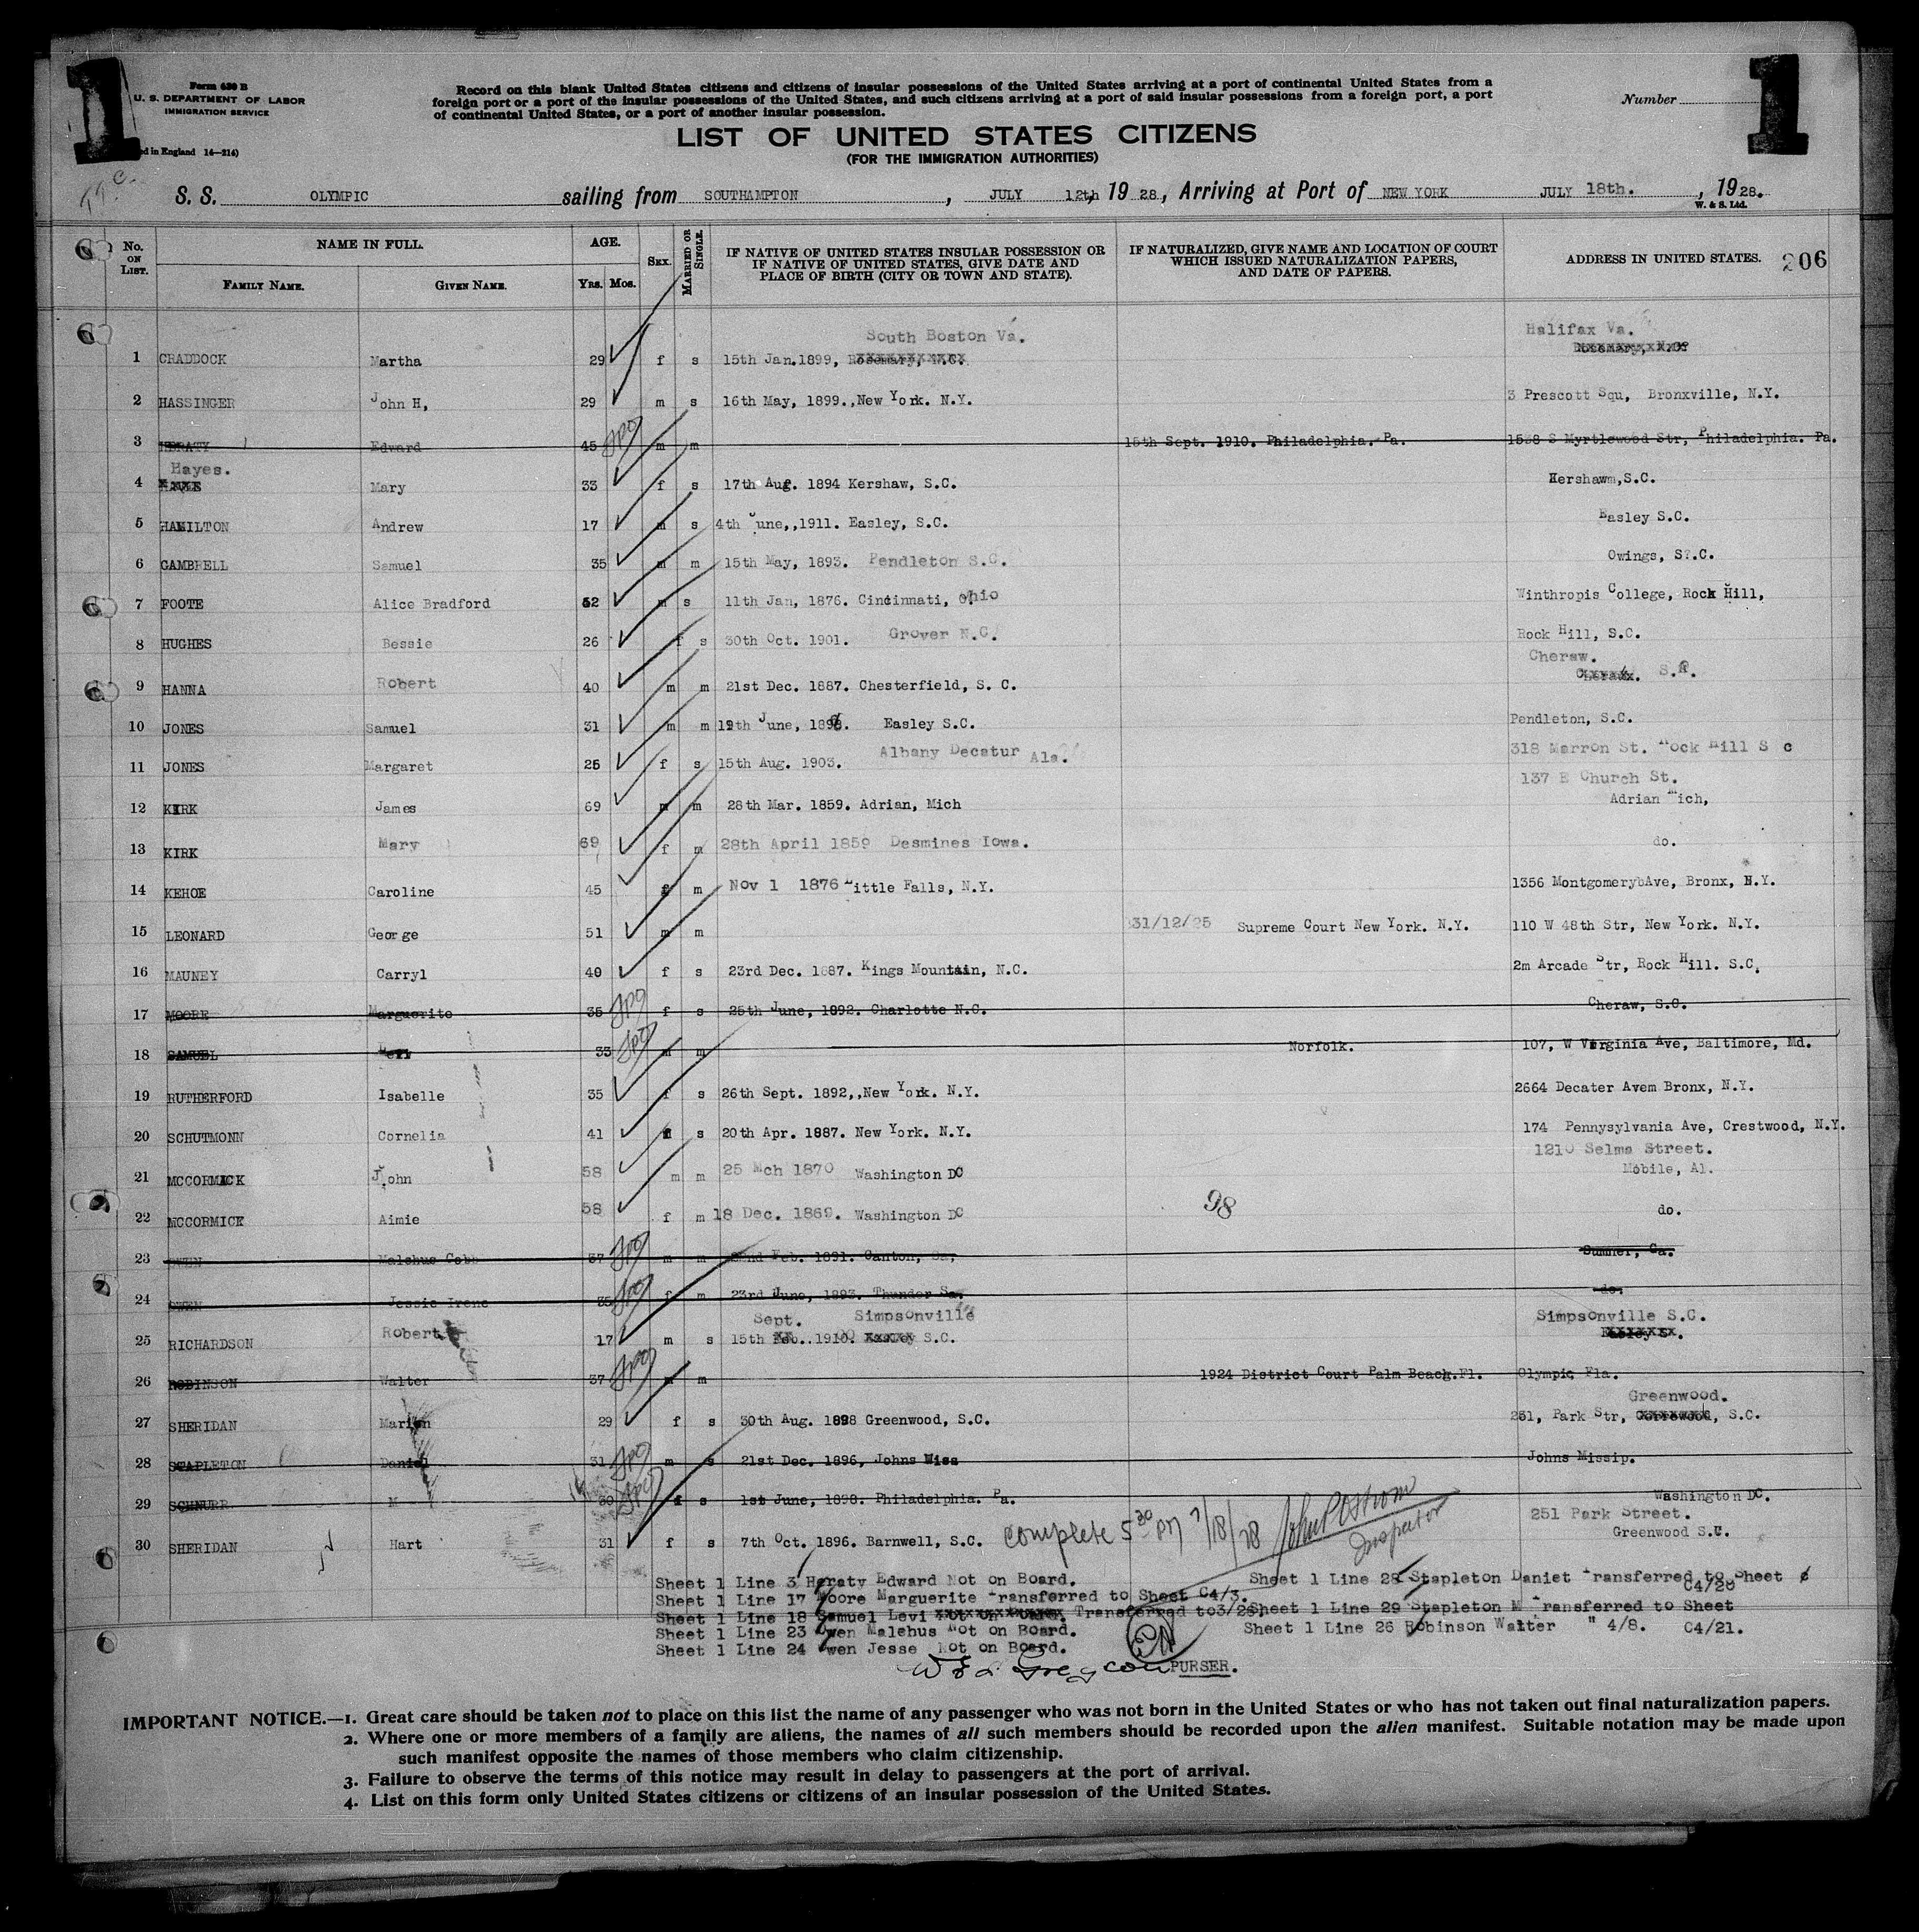 1
Form 630 B
U. S. DEPARTMENT OF LABOR
IMMIGRATION SERVICE
ed in England 14—214)
Record on this blank United States citizens and citizens of insular possessions of the United States arriving at a port of continental United States from a
foreign port or a port of the insular possessions of the United States, and such citizens arriving at a port of said insular possessions from a foreign port, a port
of continental United States, or a port of another insular possession.
Number
1
LIST OF UNITED STATES CITIZENS
(FOR THE IMMIGRATION AUTHORITIES)
S. S. OLYMPIC sailing from SOUTHAMPTON, JULY 12th, 19 28, Arriving at Port of NEW YORK JULY 18th., 1928.
W. & S. Ltd.
No. ON LIST. NAME IN FULL. AGE. SEX. MARRIED OR SINGLE. IF NATIVE OF UNITED STATES INSULAR POSSESSION OR IF NATIVE OF UNITED STATES, GIVE DATE AND PLACE OF BIRTH (CITY OR TOWN AND STATE). IF NATURALIZED, GIVE NAME AND LOCATION OF COURT WHICH ISSUED NATURALIZATION PAPERS, AND DATE OF PAPERS. ADDRESS IN UNITED STATES. 206
FAMILY NAME. GIVEN NAME. YRS. MOS.
South Boston Va. Halifax Va.
1 CRADDOCK Martha 29 f s 15th Jan.1899,
2 HASSINGER John H, 29 m s 16th May, 1899.,New York. N.Y. 3 Prescott Squ, Bronxville, N.Y.
3 HERATY Edward 45 m m 15th Sept. 1910. Philadelphia. Pa. 1538 S Myrtlewood Str, Philadelphia. Pa.
Hayes.
4 Mary 33 f s 17th Aug. 1894 Kershaw, S.C. Kershawm,S.C.
5 HAMILTON Andrew 17 m s 4th June,,1911. Easley, S.C. Easley S.C.
6 GAMBRELL Samuel 35 m m 15th May, 1893. Pendleton S.C. Owings, S.C.
7 FOOTE Alice Bradford 52 m s 11th Jan, 1876. Cincinnati, Ohio Winthropis College, Rock Hill,
8 HUGHES Bessie 26 f s 30th Oct. 1901. Grover N.C. Rock Hill, S.C.
Cheraw.
9 HANNA Robert 40 m m 21st Dec. 1887. Chesterfield, S. C.
10 JONES Samuel 31 m m 19th June, 1896. Easley S.C. Pendleton, S.C.
11 JONES Margaret 25 f s 15th Aug. 1903. Albany Decatur Ala. 318 Marron St. Rock Hill S c
137 E Church St.
12 KIRK James 69 m m 28th Mar. 1859. Adrian, Mich Adrian Mich,
13 KIRK Mary 69 f m 28th April 1859 Desmines Iowa. do.
14 KEHOE Caroline 45 f m Nov 1 1876 Little Falls, N.Y. 1356 MontgomerybAve, Bronx, N.Y.
15 LEONARD George 51 m m 31/12/25 Supreme Court New York. N.Y. 110 W 48th Str, New York. N.Y.
16 MAUNEY Carryl 40 f s 23rd Dec. 1887. Kings Mountain, N.C. 2m Arcade Str, Rock Hill. S.C.
17 MOORE Marguerite 35 f s 25th June, 1892. Charlotte N.C. Cheraw, S.C.
18 SAMUEL 33 m m Norfolk. 107, W Virginia Ave, Baltimore, Md.
19 RUTHERFORD Isabelle 35 f s 26th Sept. 1892,,New York. N.Y. 2664 Decater Avem Bronx, N.Y.
20 SCHUTMONN Cornelia 41 f s 20th Apr. 1887. New York. N.Y. 174 Pennysylvania Ave, Crestwood, N.Y.
1210 Selma Street.
21 MCCORMACK John 58 m m 25 Mch 1870 Washington DC Mobile, Al.
22 MCCORMICK Aimie 58 f m 18 Dec. 1869. Washington DC 98 do.
23 OWEN Malehus Cobb 37 m m 22nd Feb. 1891. Canton, Ga, Sumner, Ga.
24 OWEN Jessie Irene 35 f m 23rd June, 1893. Thunder do.
Sept. Simpsonville Simpsonville S.C.
25 RICHARDSON Robert 17 m s 15th 1910. S.C.
26 ROBINSON Walter 37 m m 1924 District Court Palm Beach.Fl. Olympic, Fla.
Greenwood.
27 SHERIDAN Marion 29 f s 30th Aug. 1898 Greenwood, S.C. 251, Park Str, S.C.
28 STAPLETON Daniel 31 m s 21st Dec. 1896, Johns Miss Johns Missip.
29 SCHNURR M 30 f s 1st June, 1898. Philadelphia. Pa. Washington DC.
251 Park Street.
30 SHERIDAN Hart 31 f s 7th Oct. 1896. Barnwell, S.C. Complete 5 30 PM 7/18/28 Inspector Greenwood S.C.
Sheet 1 Line 3 Heraty Edward Not on Board. Sheet 1 Line 28 Stapleton Daniet Transferred to Sheet C4/20
Sheet 1 Line 17 Moore Marguerite Transferred to Sheet C4/3.
Sheet 1 Line 18 Samuel Levi Transferred to3/26. Sheet 1 Line 29 Stapleton M Transferred to Sheet C4/21.
Sheet 1 Line 23 Owen Malehus Not on Board. Sheet 1 Line 26 Robinson Walter " 4/8.
Sheet 1 Line 24 Owen Jesse Not on Board.
PURSER.
IMPORTANT NOTICE.—1. Great care should be taken not to place on this list the name of any passenger who was not born in the United States or who has not taken out final naturalization papers.
2. Where one or more members of a family are aliens, the names of all such members should be recorded upon the alien manifest. Suitable notation may be made upon
such manifest opposite the names of those members who claim citizenship.
3. Failure to observe the terms of this notice may result in delay to passengers at the port of arrival.
4. List on this form only United States citizens or citizens of an insular possession of the United States.